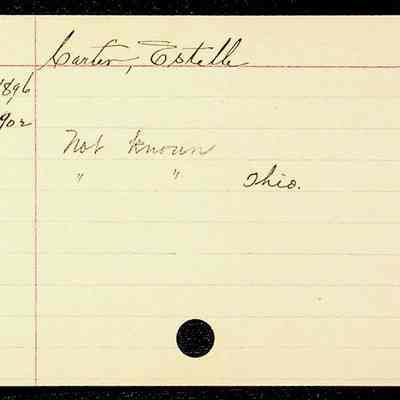 Carter, Estelle
1896
902
Not known
" " Ohio.